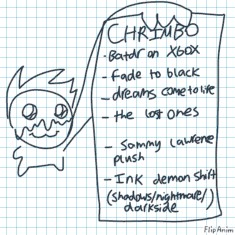 CHRIMBO
- Batdr on XBOX
- Fade to black
- dreams come to life
- the lost ones
- Sommy lawrene plush
- Ink demon shift
(shadows/nightmare/
darkside
FlipAnim